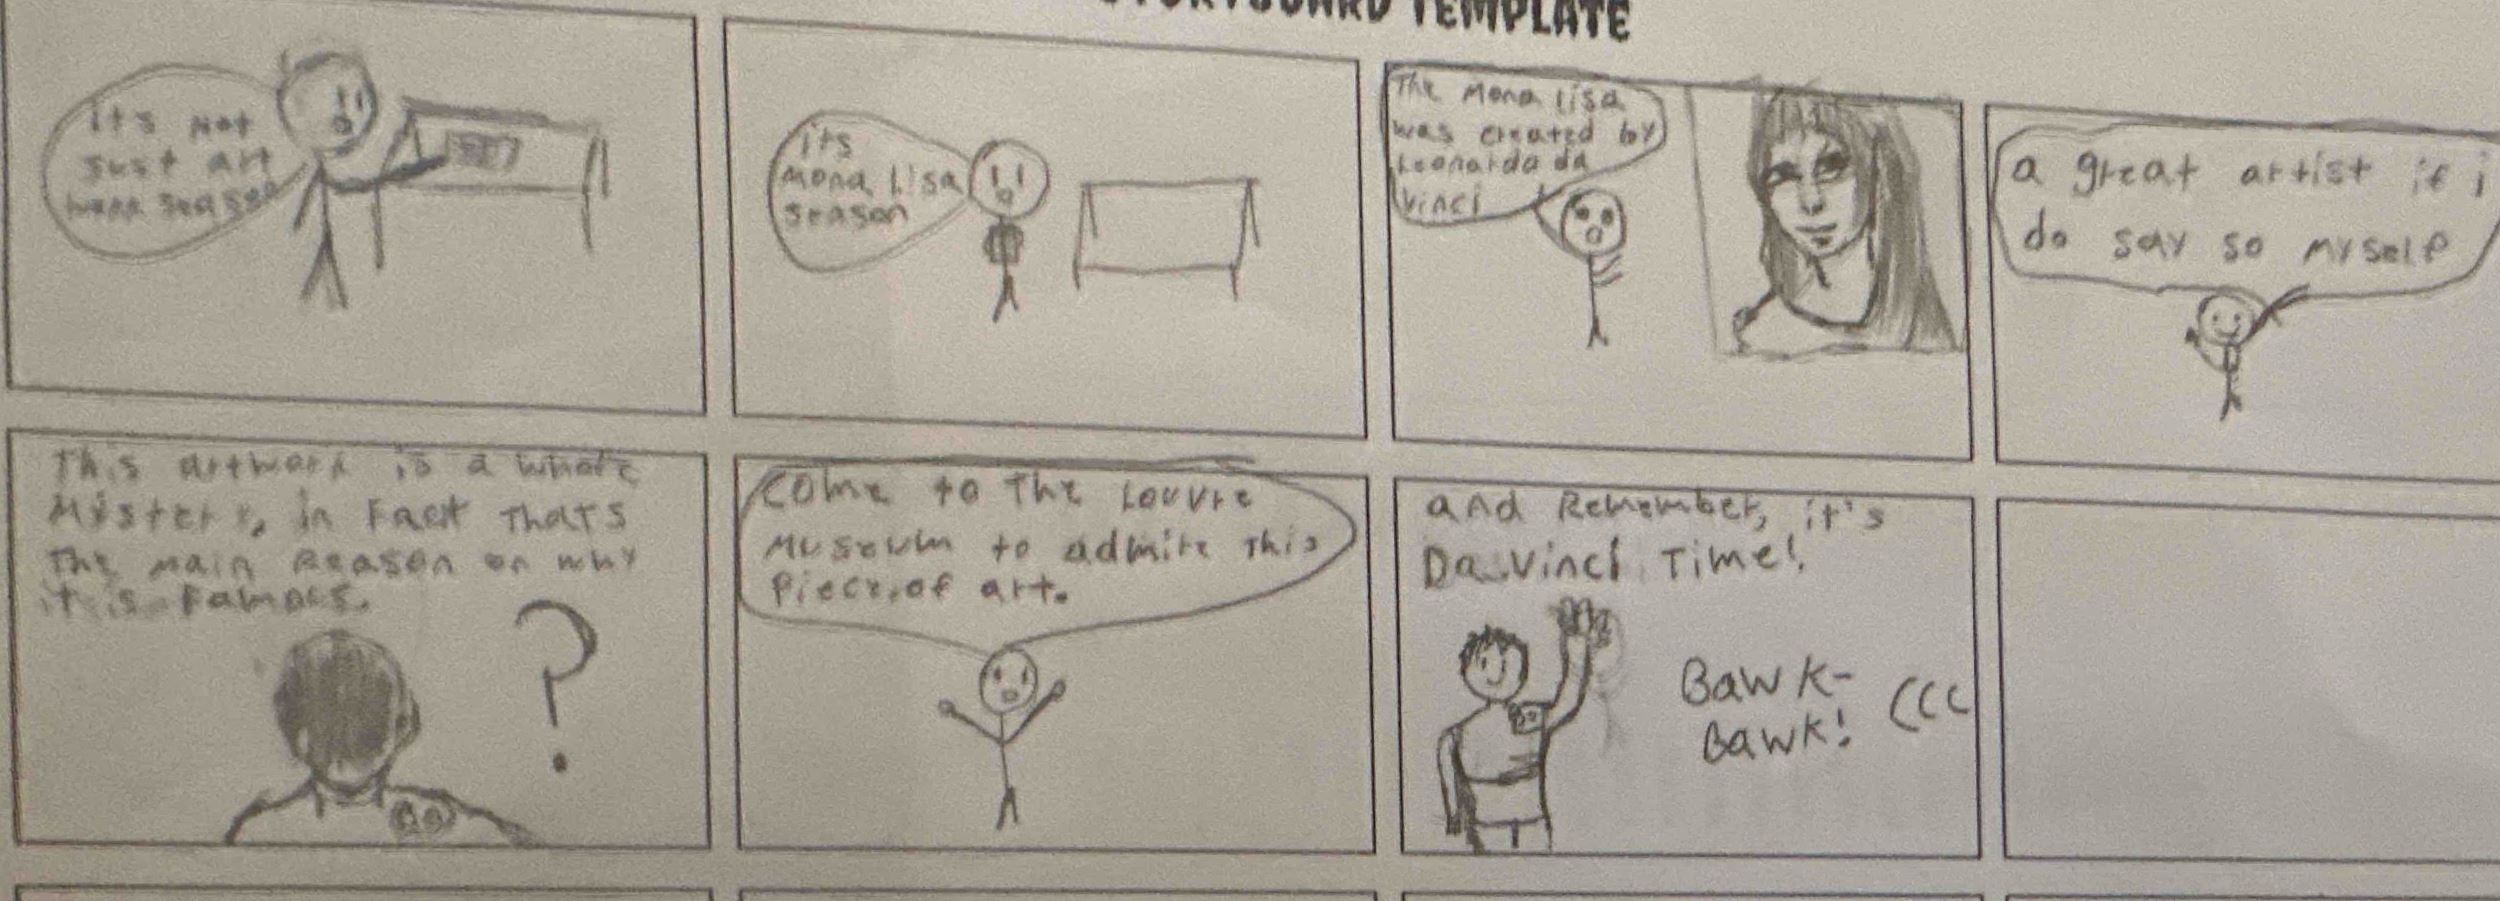 STORYBOARD TEMPLATE
its Not
Just art
season
its
Mona Lisa
season
The Mona Lisa
was created by
Leonardo da
Vinci
a great artist if i
do say so myself
This artwork is a whole
Mystery, in Fact Thats
The main Reason on why
it is Famous.
Come to The Louvre
Museum to admire This
Piece, of art.
and Remember, it's
Da Vinci Time!
BawK-
BawK!